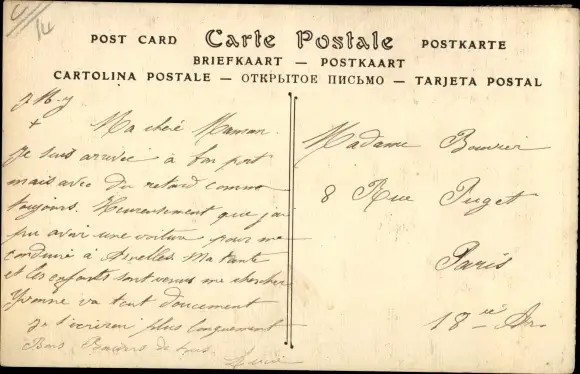 POST CARD Carte Postale POSTKARTE
BRIEFKAART — POSTKAART
CARTOLINA POSTALE — ОТКРЫТОЕ ПИСЬМО — TARJETA POSTAL
Ma chère Maman
Je suis arrivée à bon port
mais avec du retard comme
toujours. Heureusement que j'ai
pu avoir une voiture pour me
conduire à Asnelles Ma tante
et les enfants sont venus me chercher
Yvonne va tout doucement
Je t'écrirai plus longuement
Bons Baisers de tous
Madame
8 Rue Puget
Paris
18